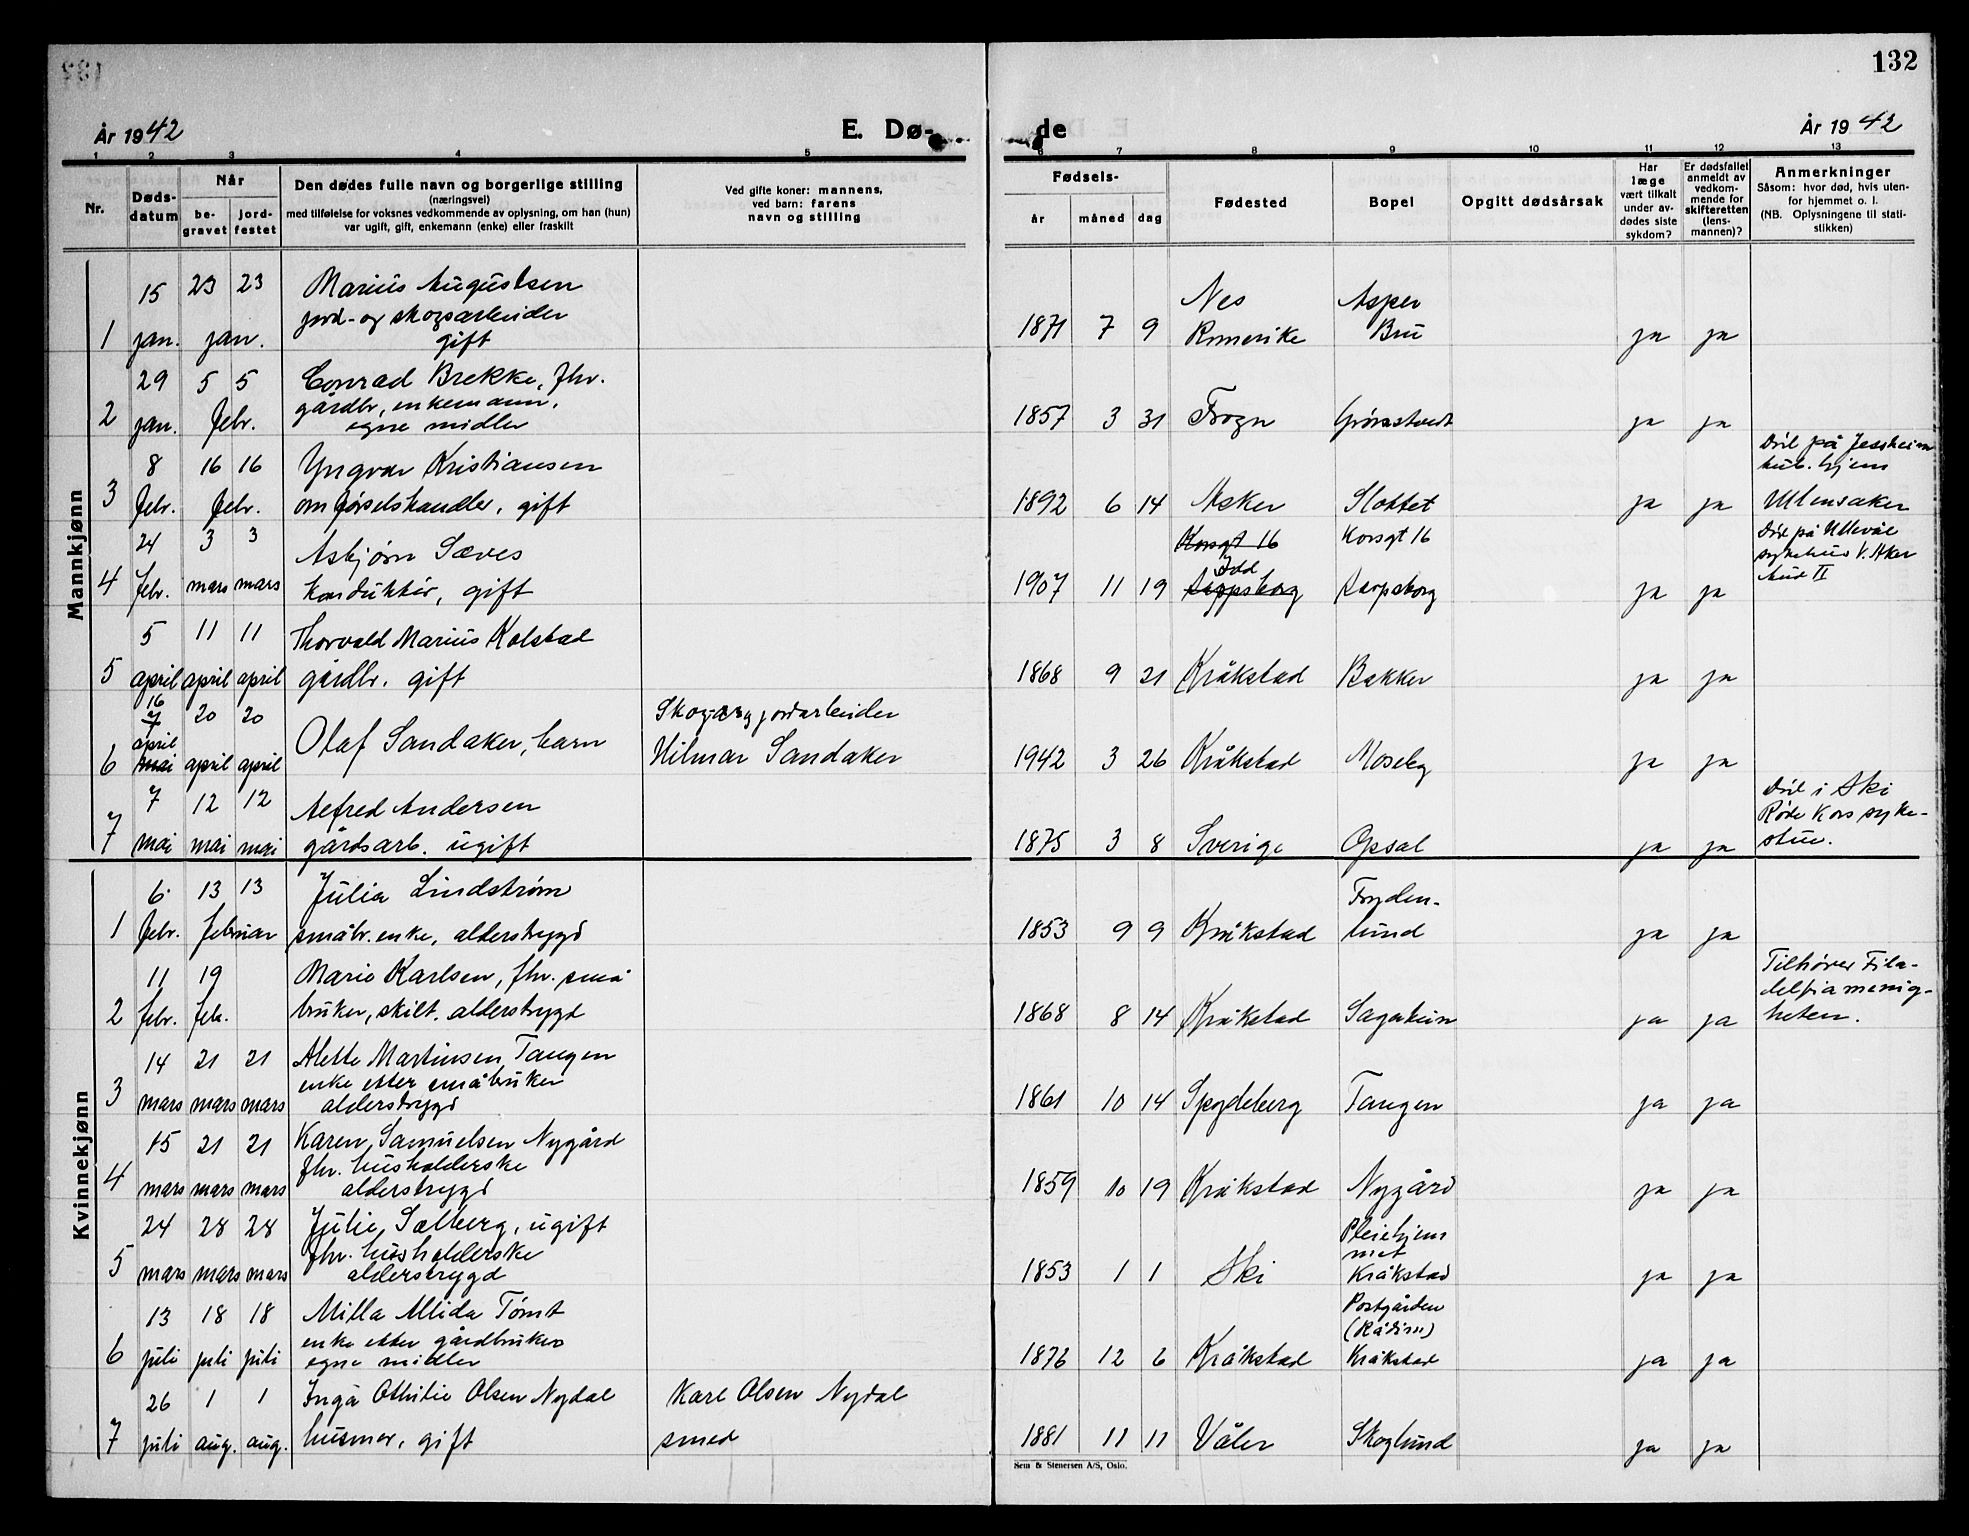 132
År 1942
E. Dø-
de
År 1942
1 2 3 4 5
6 7 8 9 10 11 12 13
Nr.
Døds-
datum
Når
be-
gravet
jord-
festet
Den dødes fulle navn og borgerlige stilling
(næringsvei)
med tilføielse for voksnes vedkommende av oplysning, om han (hun)
var ugift, gift, enkemann (enke) eller fraskilt
Ved gifte koner: mannens,
ved barn: farens
navn og stilling
Fødsels-
år måned dag
Fødested
Bopel
Opgitt dødsårsak
Har
læge
vært tilkalt
under av-
dødes siste
sykdom?
Er dødsfallet
anmeldt av
vedkom-
mende for
skifteretten
(lens-
mannen)?
Anmerkninger
Såsom: hvor død, hvis uten-
for hjemmet o. l.
(NB. Oplysningene til stati-
stikken)
Mannkjønn
1 15 jan. 23 23 jan.
Marius Augustsen
jord- og skogsarbeider
gift
1871 7 9
Nes
Romerike
Asper
Bru
ja ja
2 29 jan. 5 5 febr.
Conrad Brekke, fhv.
gårdbr, enkemann,
egne midler
1857 3 31 Frogn Grønstvedt ja ja
3 8 febr. 16 16 febr.
Yngvar Kristiansen
omførselshandler, gift
1892 6 14 Asker Slottet ja ja
Død på Jessheim
tub. hjem
Ullensaker
4 24 febr. 3 mars 3 mars
Asbjørn Sæves
konduktør, gift
1907 11 19
Korsgt 16
Idd
Sarpsborg
Korsgt 16
Sarpsborg
ja ja
Død på Ullevål
sykehus V. Aker
5 5 april 11 april 11 april
Thorvald Marius Kolstad
gårdbr. gift
1868 9 21 Kråkstad Bakker ja ja
6 16 7 april mai 20 april 20 april
Olaf Sandaker, barn
Skog- og jordarbeider
Hilmar Sandaker
1942 3 26 Kråkstad Moseby ja ja
7 7 mai 12 mai 12 mai
Alfred Andersen
gårdsarb. ugift
1875 3 8 Sverige Opsal ja ja
Død i Ski
Røde Kors syke-
stue.
Kvinnekjønn
1 6 febr. 13 13 februar
Julia Lindstrøm
småbr. enke, alderstrygd
1853 9 9 Kråkstad
Fryden-
lund
ja ja
2 11 febr. 19 feb.
Marie Karlsen, fhv. små
bruker, skilt. alderstrygd
1868 8 14 Kråkstad Sagaheim ja ja
Tilhører Fila-
delfia menig-
heten.
3 14 mars 21 mars 21 mars
Alette Martinsen Tangen
enke etter småbruker
alderstrygd
1861 10 14 Spydeberg Tangen ja ja
4 15 mars 21 mars 21 mars
Karen Samuelsen Nygård
fhv. husholderske
alderstrygd
1859 10 19 Kråkstad Nygård ja ja
5 24 mars 28 mars 28 mars
Julie Solberg, ugift
fhv. husholderske
alderstrygd
1853 1 1 Ski
Pleiehjem
met
Kråkstad
ja ja
6 13 juli 18 juli 18 juli
Milla Alida Tømt
enke etter gårdbruker
egne midler
1876 12 6 Kråkstad
Postgården
Kråkstad
ja ja
7 26 juli 1 aug. 1 aug.
Inga Othilie Olsen Nydal
husmor, gift
Karl Olsen Nydal
smed
1881 11 11 Våler Skoglund ja ja
Sem & Stenersen A/S, Oslo.